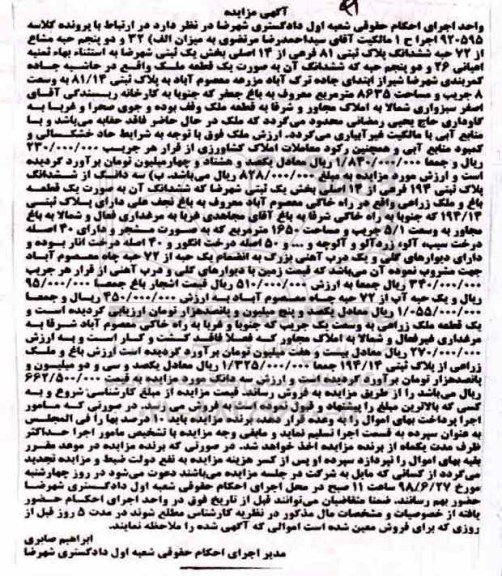 آگهی مزایده
واحد اجرای احکام حقوقی شعبه اول دادگستری شهرضا در نظر دارد در ارتباط با پرونده کلاسه
۹۲-۵۹۵ اجرا ح ۱ مالکیت آقای سیداحمدرضا مرتضوی به میزان الف) ۳۲ و دو پنجم حبه مشاع
از ۷۲ حبه ششدانگ پلاک ثبتی ۸۱ فرعی از ۱۴ اصلی بخش یک ثبتی شهرضا به استثناء بهاء ثمنیه
اعیانی ۲۶ و دو پنجم حبه که ششدانگ آن به صورت یک قطعه ملک واقع در حاشیه جاده
کمربندی شهرضا شیراز ابتدای جاده ترک آباد مزرعه معصوم آباد به پلاک ثبتی ۸۱/۱۴ به وسعت
۸ جریب و مساحت ۸۶۳۵ مترمربع معروف به باغ جعفر که جنوبا به کارخانه ریسندگی آقای
اصغر سبزواری شمالا به املاک مجاور و شرقا به قطعه ملک وقف بوده و جوی صحرا و غربا به
گاوداری حاج یحیی رمضانی محدود می‌گردد که ملک در حال حاضر فاقد حقابه می‌باشد و با
منابع آبی با مالکیت غیرآبیاری می‌گردد. ارزش ملک فوق با توجه به شرایط حاد خشکسالی و
کمبود منابع آبی و همچنین رکود معاملات املاک کشاورزی از قرار هر جریب ۲۳۰/۰۰۰/۰۰۰
ریال و جمعا ۱/۸۴۰/۰۰۰/۰۰۰ ریال معادل یکصد و هشتاد و چهارمیلیون تومان برآورد گردیده
است و ارزش مورد مزایده الف مبلغ ۸۲۸/۰۰۰/۰۰۰ ریال می‌باشد. ب) سه دانگ از ششدانگ
پلاک ثبتی ۱۹۴ فرعی از ۱۴ اصلی بخش یک ثبتی شهرضا که ششدانگ آن به صورت یک قطعه
باغ و ملک زراعی واقع در راه خاکی معصوم آباد معروف به باغ نجف علی دارای پلاک ثبتی
۱۹۴/۱۴ که جنوبا به راه خاکی شرقا به باغ آقای مجاهدی غربا به مرغداری فعال و شمالا به باغ
مجاور به وسعت ۵/۱ جریب و مساحت ۱۶۵۰ مترمربع که به صورت مشجر و دارای ۴۰ اصله
درخت سیب، آلو، زردآلو و آلوچه و ... و ۵۰ اصله درخت انگور و ۴۰ اصله درخت انار بوده و
دارای دیوارهای گلی و یک درب آهنی بزرگ به انضمام یک حبه از ۷۲ حبه چاه معصوم آباد
جهت مشروب نموده آن می‌باشد که قیمت زمین با دیوارهای گلی و درب آهنی از قرار هر جریب
۳۴۰/۰۰۰/۰۰۰ ریال جمعا به ارزش ۵۱۰/۰۰۰/۰۰۰ ریال قیمت اشجار باغ جمعا ۹۵/۰۰۰/۰۰۰
ریال و یک حبه آب از ۷۲ حبه چاه معصوم آباد به ارزش ۴۵۰/۰۰۰/۰۰۰ ریال و جمعا
۱/۰۵۵/۰۰۰/۰۰۰ ریال معادل یکصد و پنج میلیون و پانصدهزار تومان ارزیابی گردیده است و
یک قطعه ملک زراعی به وسعت یک جریب که جنوبا و غربا به راه خاکی معصوم آباد شرقا به
مرغداری غیرفعال و شمالا به املاک مجاور که فعلا فاقد کشت و کار است و به ارزش
۲۷۰/۰۰۰/۰۰۰ ریال معادل بیست و هفت میلیون تومان برآورد گردیده است ارزش باغ و ملک
زراعی از پلاک ثبتی ۱۹۴/۱۴ جمعا ۱/۳۲۵/۰۰۰/۰۰۰ ریال معادل یکصد و سی و دو میلیون و
پانصدهزار تومان برآورد گردیده است و ارزش سه دانگ مورد مزایده به قیمت ۶۶۲/۵۰۰/۰۰۰
ریال می‌باشد را از طریق مزایده به فروش رساند. قیمت مزایده از مبلغ کارشناسی شروع و به
کسی که بالاترین مبلغ را پیشنهاد و قبول نموده است به فروش می رسد. در صورتی که مامور
اجرا پرداخت بهای اموال را به وعده قرار دهد برنده مزایده باید ۱۰ درصد بها را فی المجلس
به عنوان سپرده به قسمت اجرا تسلیم نماید و مابقی وجه مزایده با تشخیص مامور اجرا حداکثر
ظرف مدت یکماه از برنده مزایده اخذ خواهد شد. در صورتی که برنده مزایده در موعد مقرر
بقیه بهای اموال را نپردازد سپرده او پس از کسر هزینه مزایده به نفع دولت ضبط و مزایده تجدید
می‌گردد از کسانی که مایل به شرکت در جلسه مزایده می‌باشند دعوت می‌شود در روز چهارشنبه
مورخ ۹۸/۶/۲۷ ساعت ۱۱ صبح در محل اجرای احکام حقوقی شعبه اول دادگستری شهرضا
حضور بهم رسانند. ضمنا متقاضیان می‌توانند قبل از تاریخ فوق در واحد اجرای احکام حضور
یافته از خصوصیات و مشخصات مال مذکور در نظریه کارشناس مطلع شوند در مدت ۵ روز قبل از
روزی که برای فروش معین شده است اموالی که آگهی شده را ملاحظه نمایند.
ابراهیم صابری
مدیر اجرای احکام حقوقی شعبه اول دادگستری شهرضا